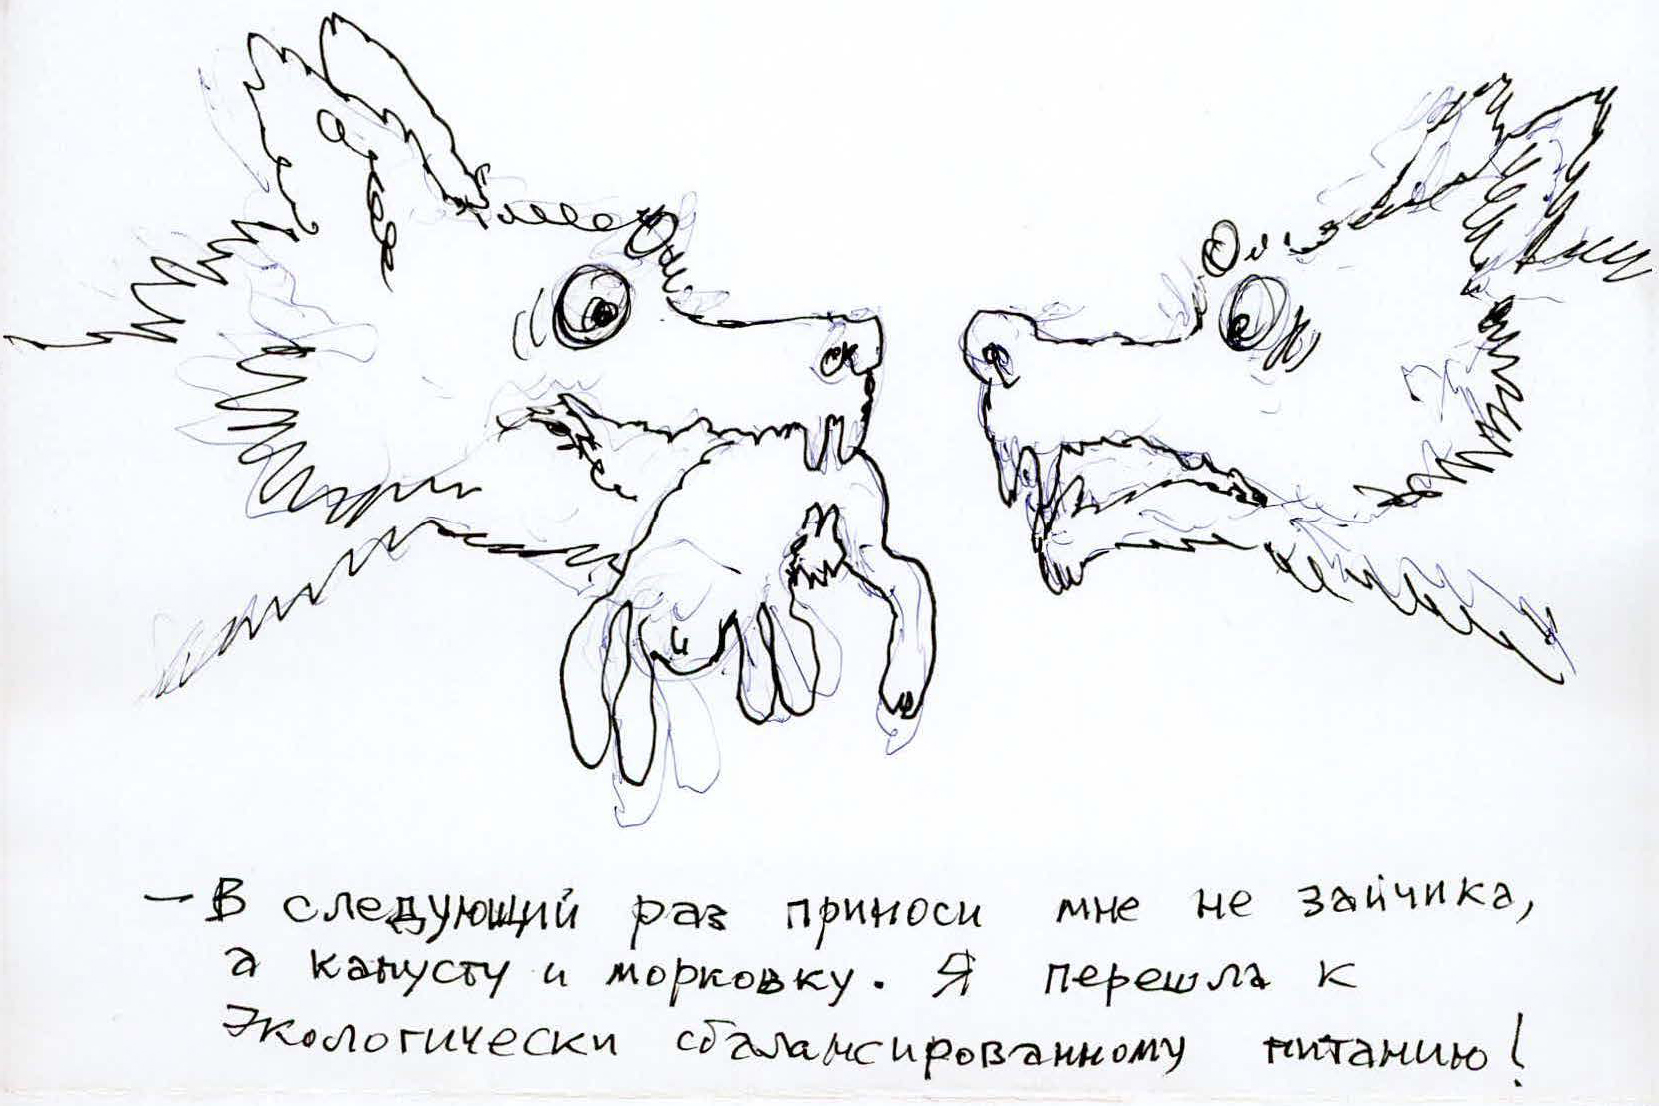 — В следующий раз приноси мне не зайчика,
а капусту и морковку. Я перешла к
экологически сбалансированному питанию!